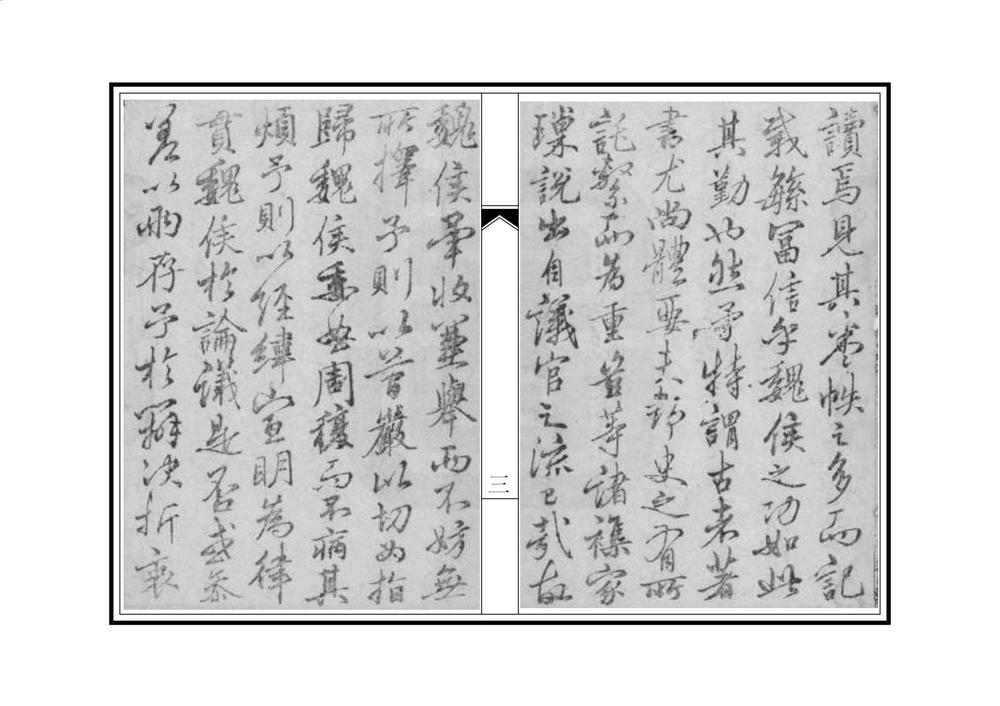 讀焉見其卷帙之多而記
載緐富信乎魏侯之功如此
其勤也然予特謂古者著
書尤尚體要野史之有所
託繫而為重名等諸襍家
璅說出自議官之流已哉故
三
魏侯畢收並舉而不妨無
所擇予則以嚴以切為指
歸魏侯委曲周複而不病其
煩予則以經緯宣明為律
貫魏侯於論議是否或參
差以兩存予於辨決折衷